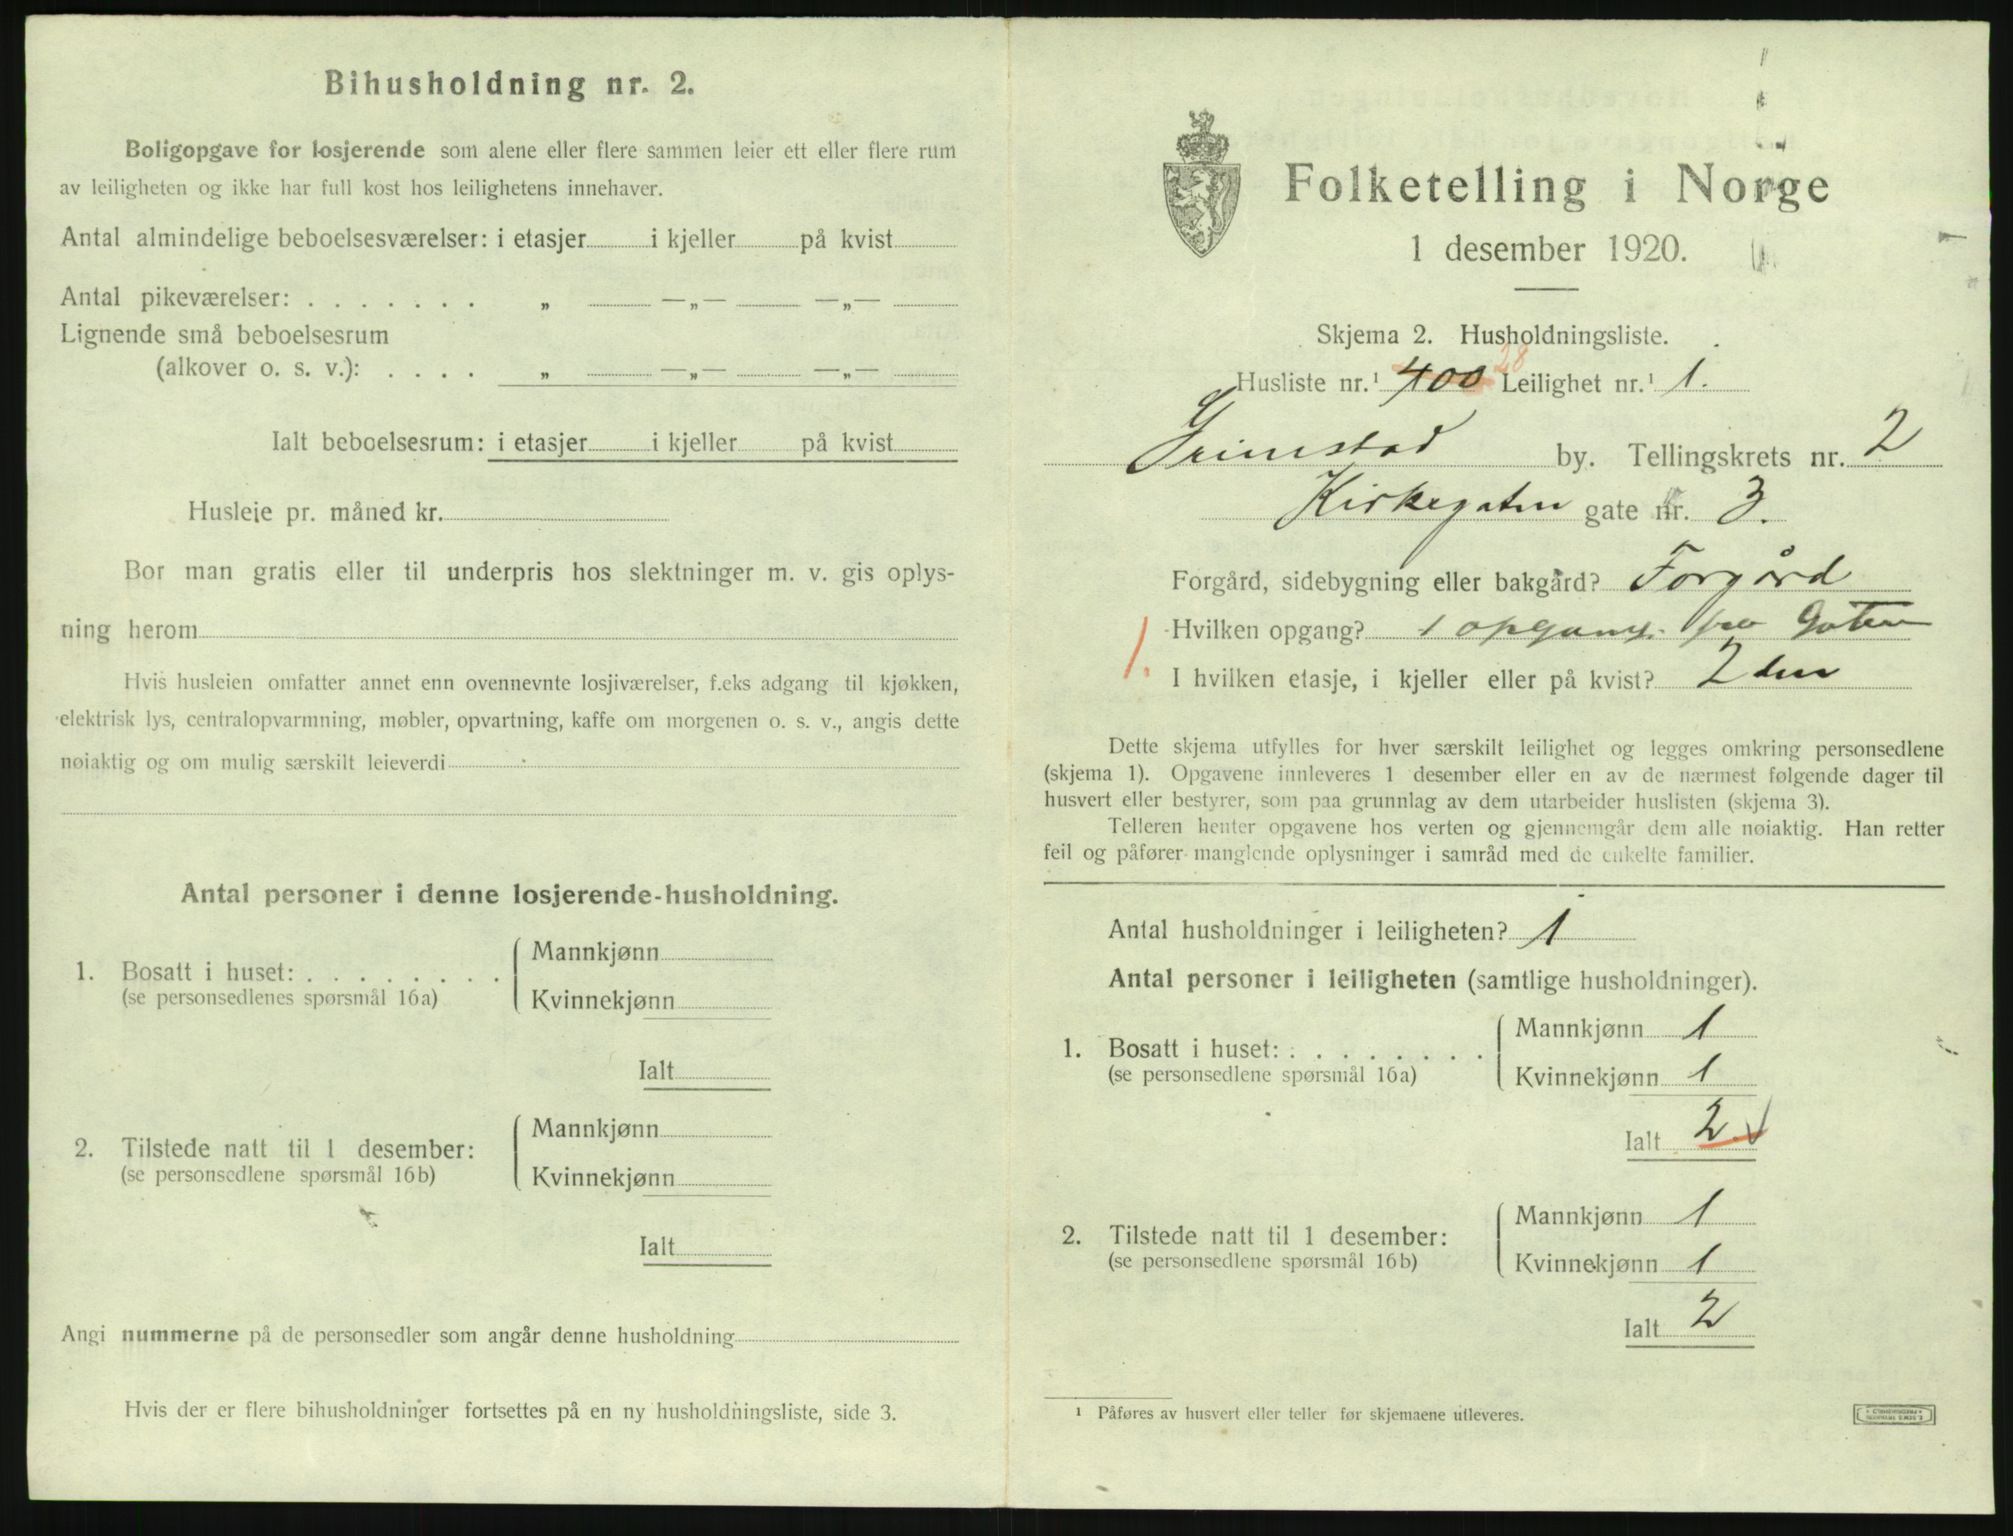 Bihusholdning nr. 2.
Boligopgave for losjerende som alene eller flere sammen leier ett eller flere rum
av leiligheten og ikke har full kost hos leilighetens innehaver.
Antal almindelige beboelsesværelser: i etasjer i kjeller på kvist
Antal pikeværelser: . . . . . . . „ —„— —„—
Lignende små beboelsesrum
(alkover o. s. v.): . . . . „ —„— —„—
Ialt beboelsesrum: i etasjer i kjeller på kvist
Husleie pr. måned kr.
Bor man gratis eller til underpris hos slektninger m. v. gis oplys-
ning herom
Hvis husleien omfatter annet enn ovennevnte losjiværelser, f.eks adgang til kjøkken,
elektrisk lys, centralopvarmning, møbler, opvartning, kaffe om morgenen o. s. v., angis dette
nøiaktig og om mulig særskilt leieverdi
Antal personer i denne losjerende-husholdning.
1. Bosatt i huset: . . . . . . . . Mannkjønn
(se personsedlenes spørsmål 16a) Kvinnekjønn
Ialt
2. Tilstede natt til 1 desember: Mannkjønn
(se personsedlene spørsmål 16b) Kvinnekjønn
Ialt
Angi nummerne på de personsedler som angår denne husholdning
Hvis der er flere bihusholdninger fortsettes på en ny husholdningsliste, side 3.
Folketelling i Norge
1 desember 1920.
Skjema 2. Husholdningsliste.
Husliste nr.¹ 400 28 Leilighet nr.¹ 1.
Grimstad by. Tellingskrets nr. 2
Kirkegaten gate nr. 3.
Forgård, sidebygning eller bakgård? Forgård
Hvilken opgang? 1 opgang. fra Gaten
1. I hvilken etasje, i kjeller eller på kvist? 2den
Dette skjema utfylles for hver særskilt leilighet og legges omkring personsedlene
(skjema 1). Opgavene innleveres 1 desember eller en av de nærmest følgende dager til
husvert eller bestyrer, som paa grunnlag av dem utarbeider huslisten (skjema 3).
Telleren henter opgavene hos verten og gjennemgår dem alle nøiaktig. Han retter
feil og påfører manglende oplysninger i samråd med de enkelte familier.
Antal husholdninger i leiligheten? 1
Antal personer i leiligheten (samtlige husholdninger).
1. Bosatt i huset: . . . . . . . . Mannkjønn 1
(se personsedlene spørsmål 16a) Kvinnekjønn 1
Ialt 2
2. Tilstede natt til 1 desember: Mannkjønn 1
(se personsedlene spørsmål 16b) Kvinnekjønn 1
Ialt 2
¹ Påføres av husvert eller teller før skjemaene utleveres.